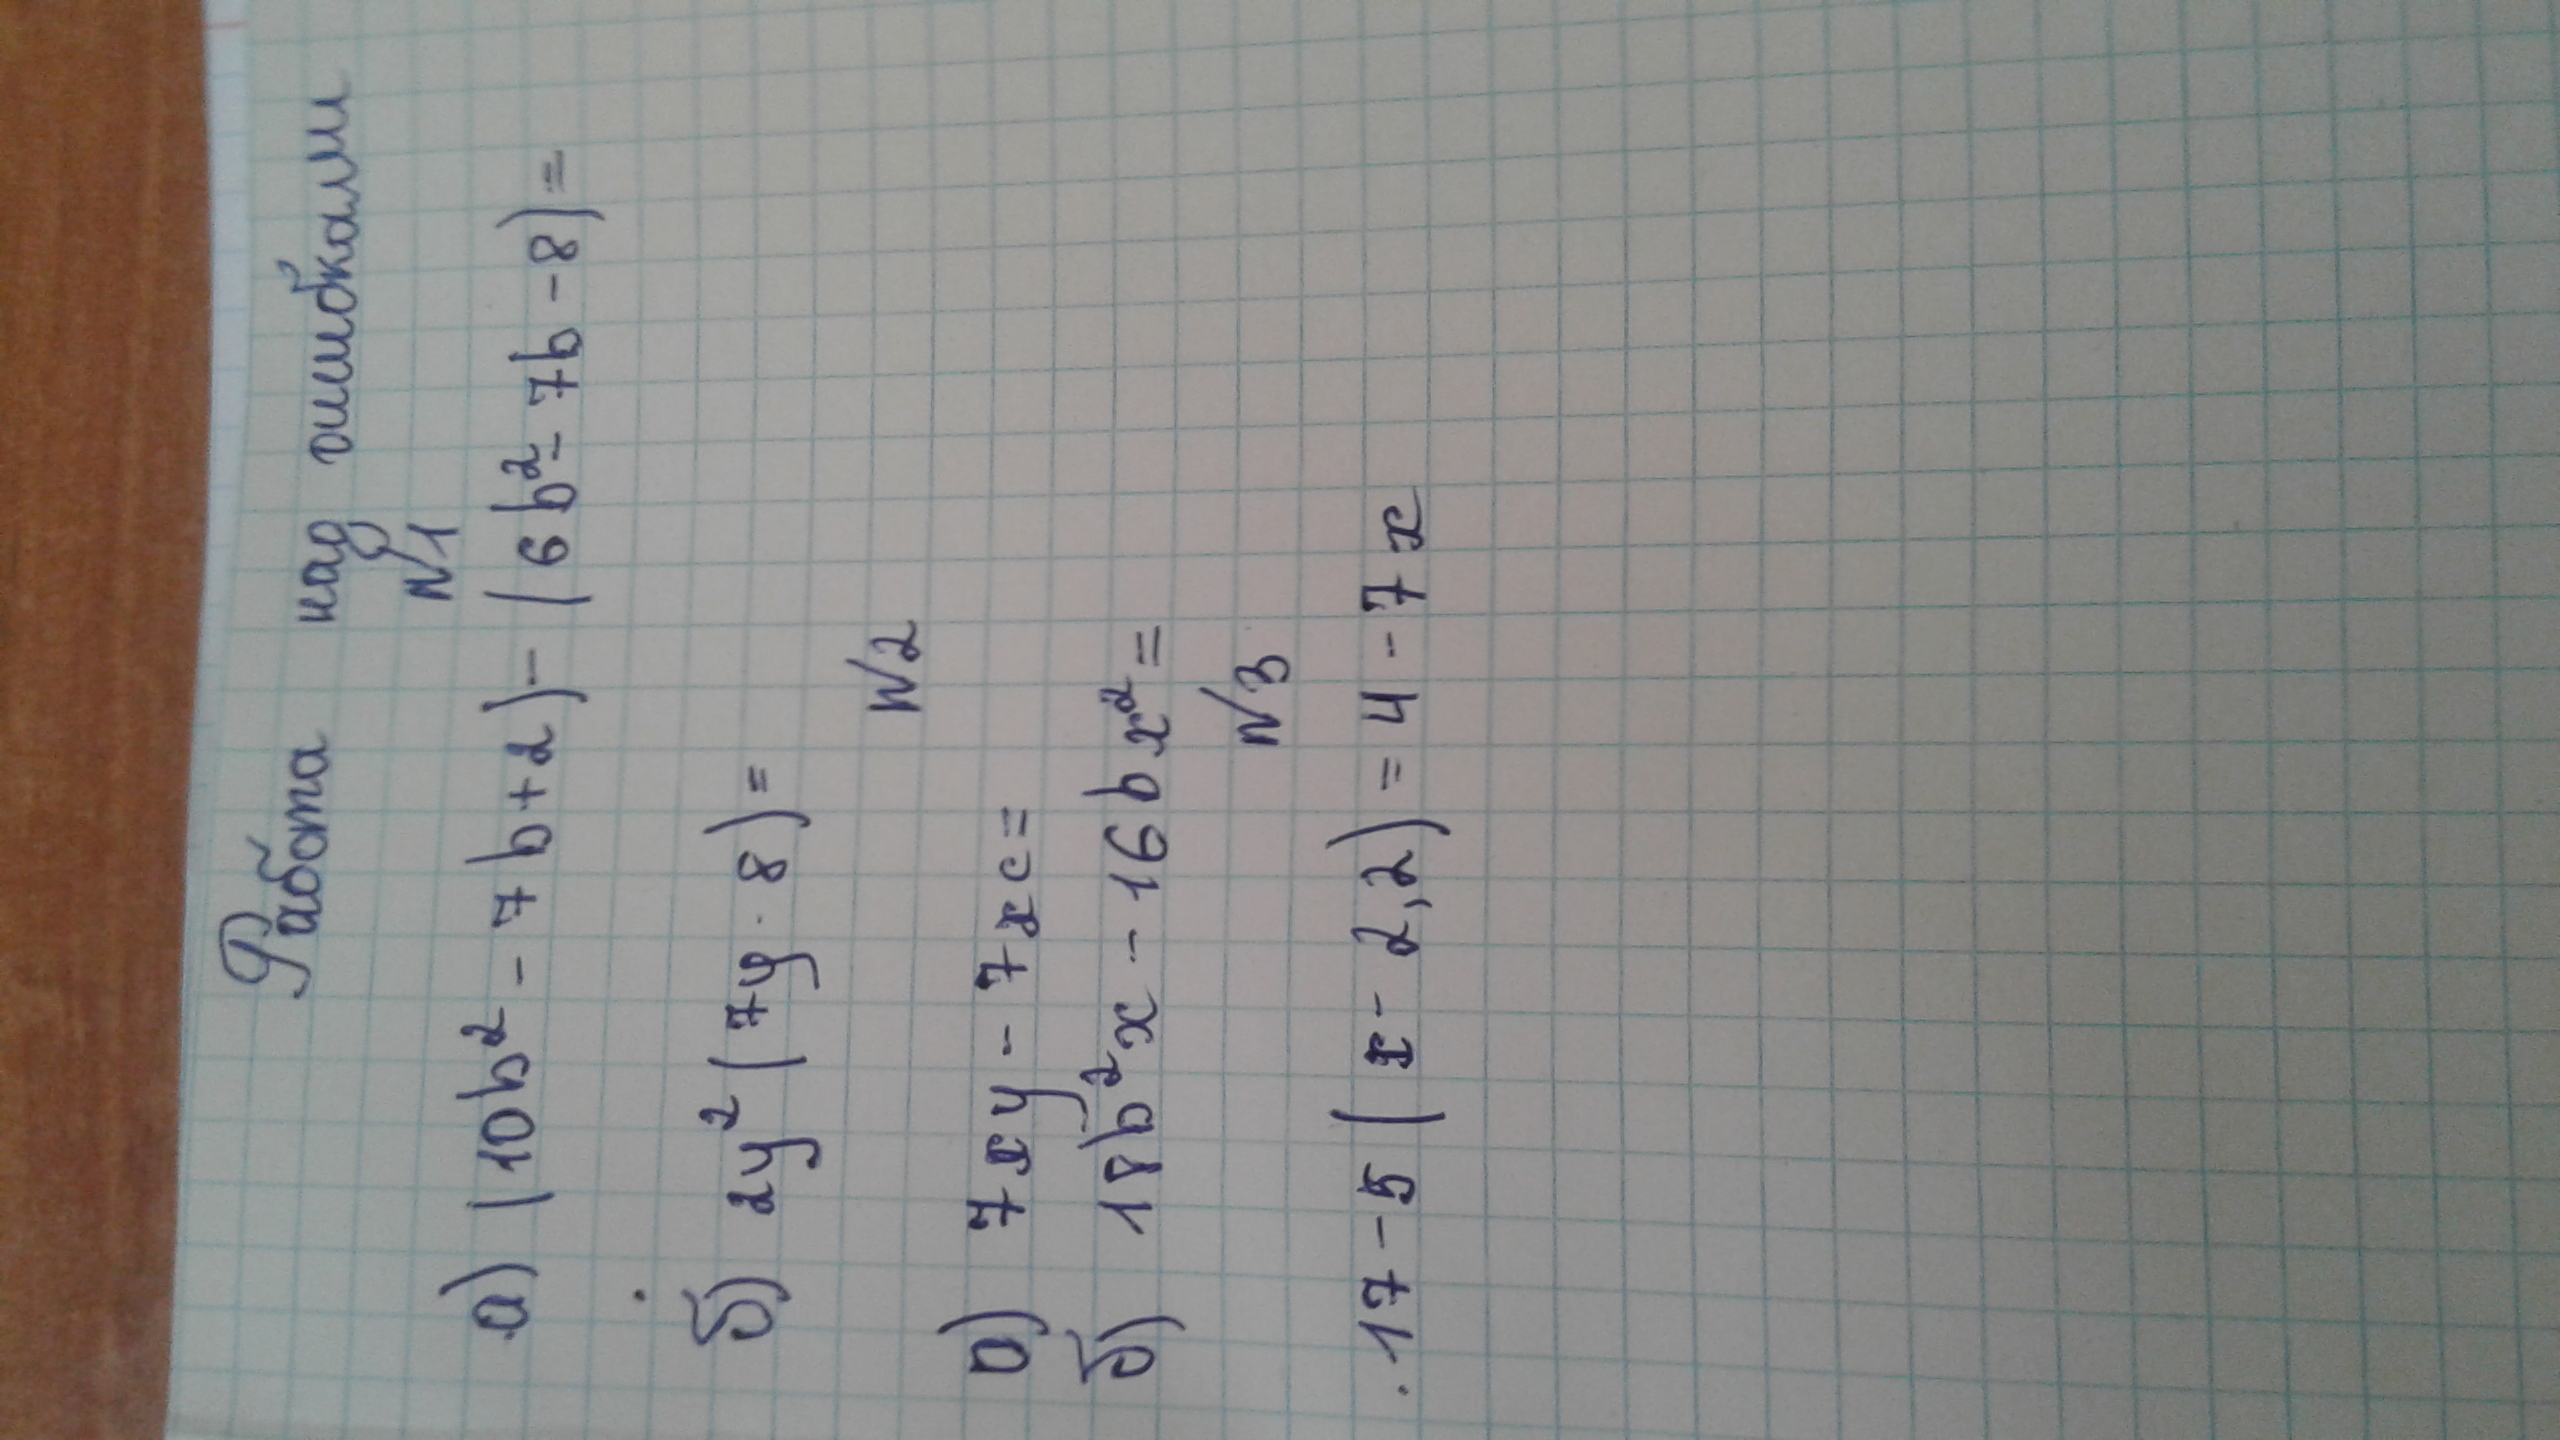 Работа над ошибками
№1
а) (10b² - 7b + 2) - (6b² - 7b - 8) =
б) 2y² (7y · 8) =
№2
а) 7xy - 7xc =
б) 18b²x - 16bx² =
№3
17 - 5 (x - 2,2) = 4 - 7x